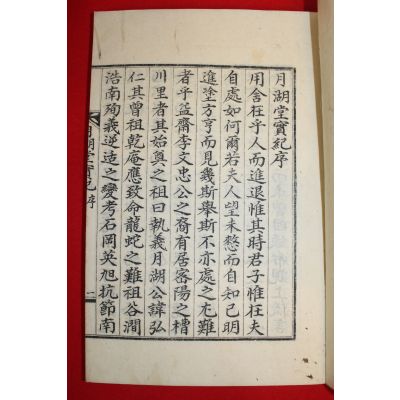 月湖堂實紀序
用舍在乎人而進退惟其時君子惟在夫
自處如何爾若夫人望未愁而自知已明
進塗方亨而見幾斯舉斯不亦處之尤難
者乎益齋李文忠公之裔有居密陽之槽
川里者其始寔之祖曰執義月湖公諱弘
仁其曾祖乾庵應致命龍蛇之難祖谷澗
浩南殉義逆造之變考石岡英旭抗節南
月湖堂實紀 序 一